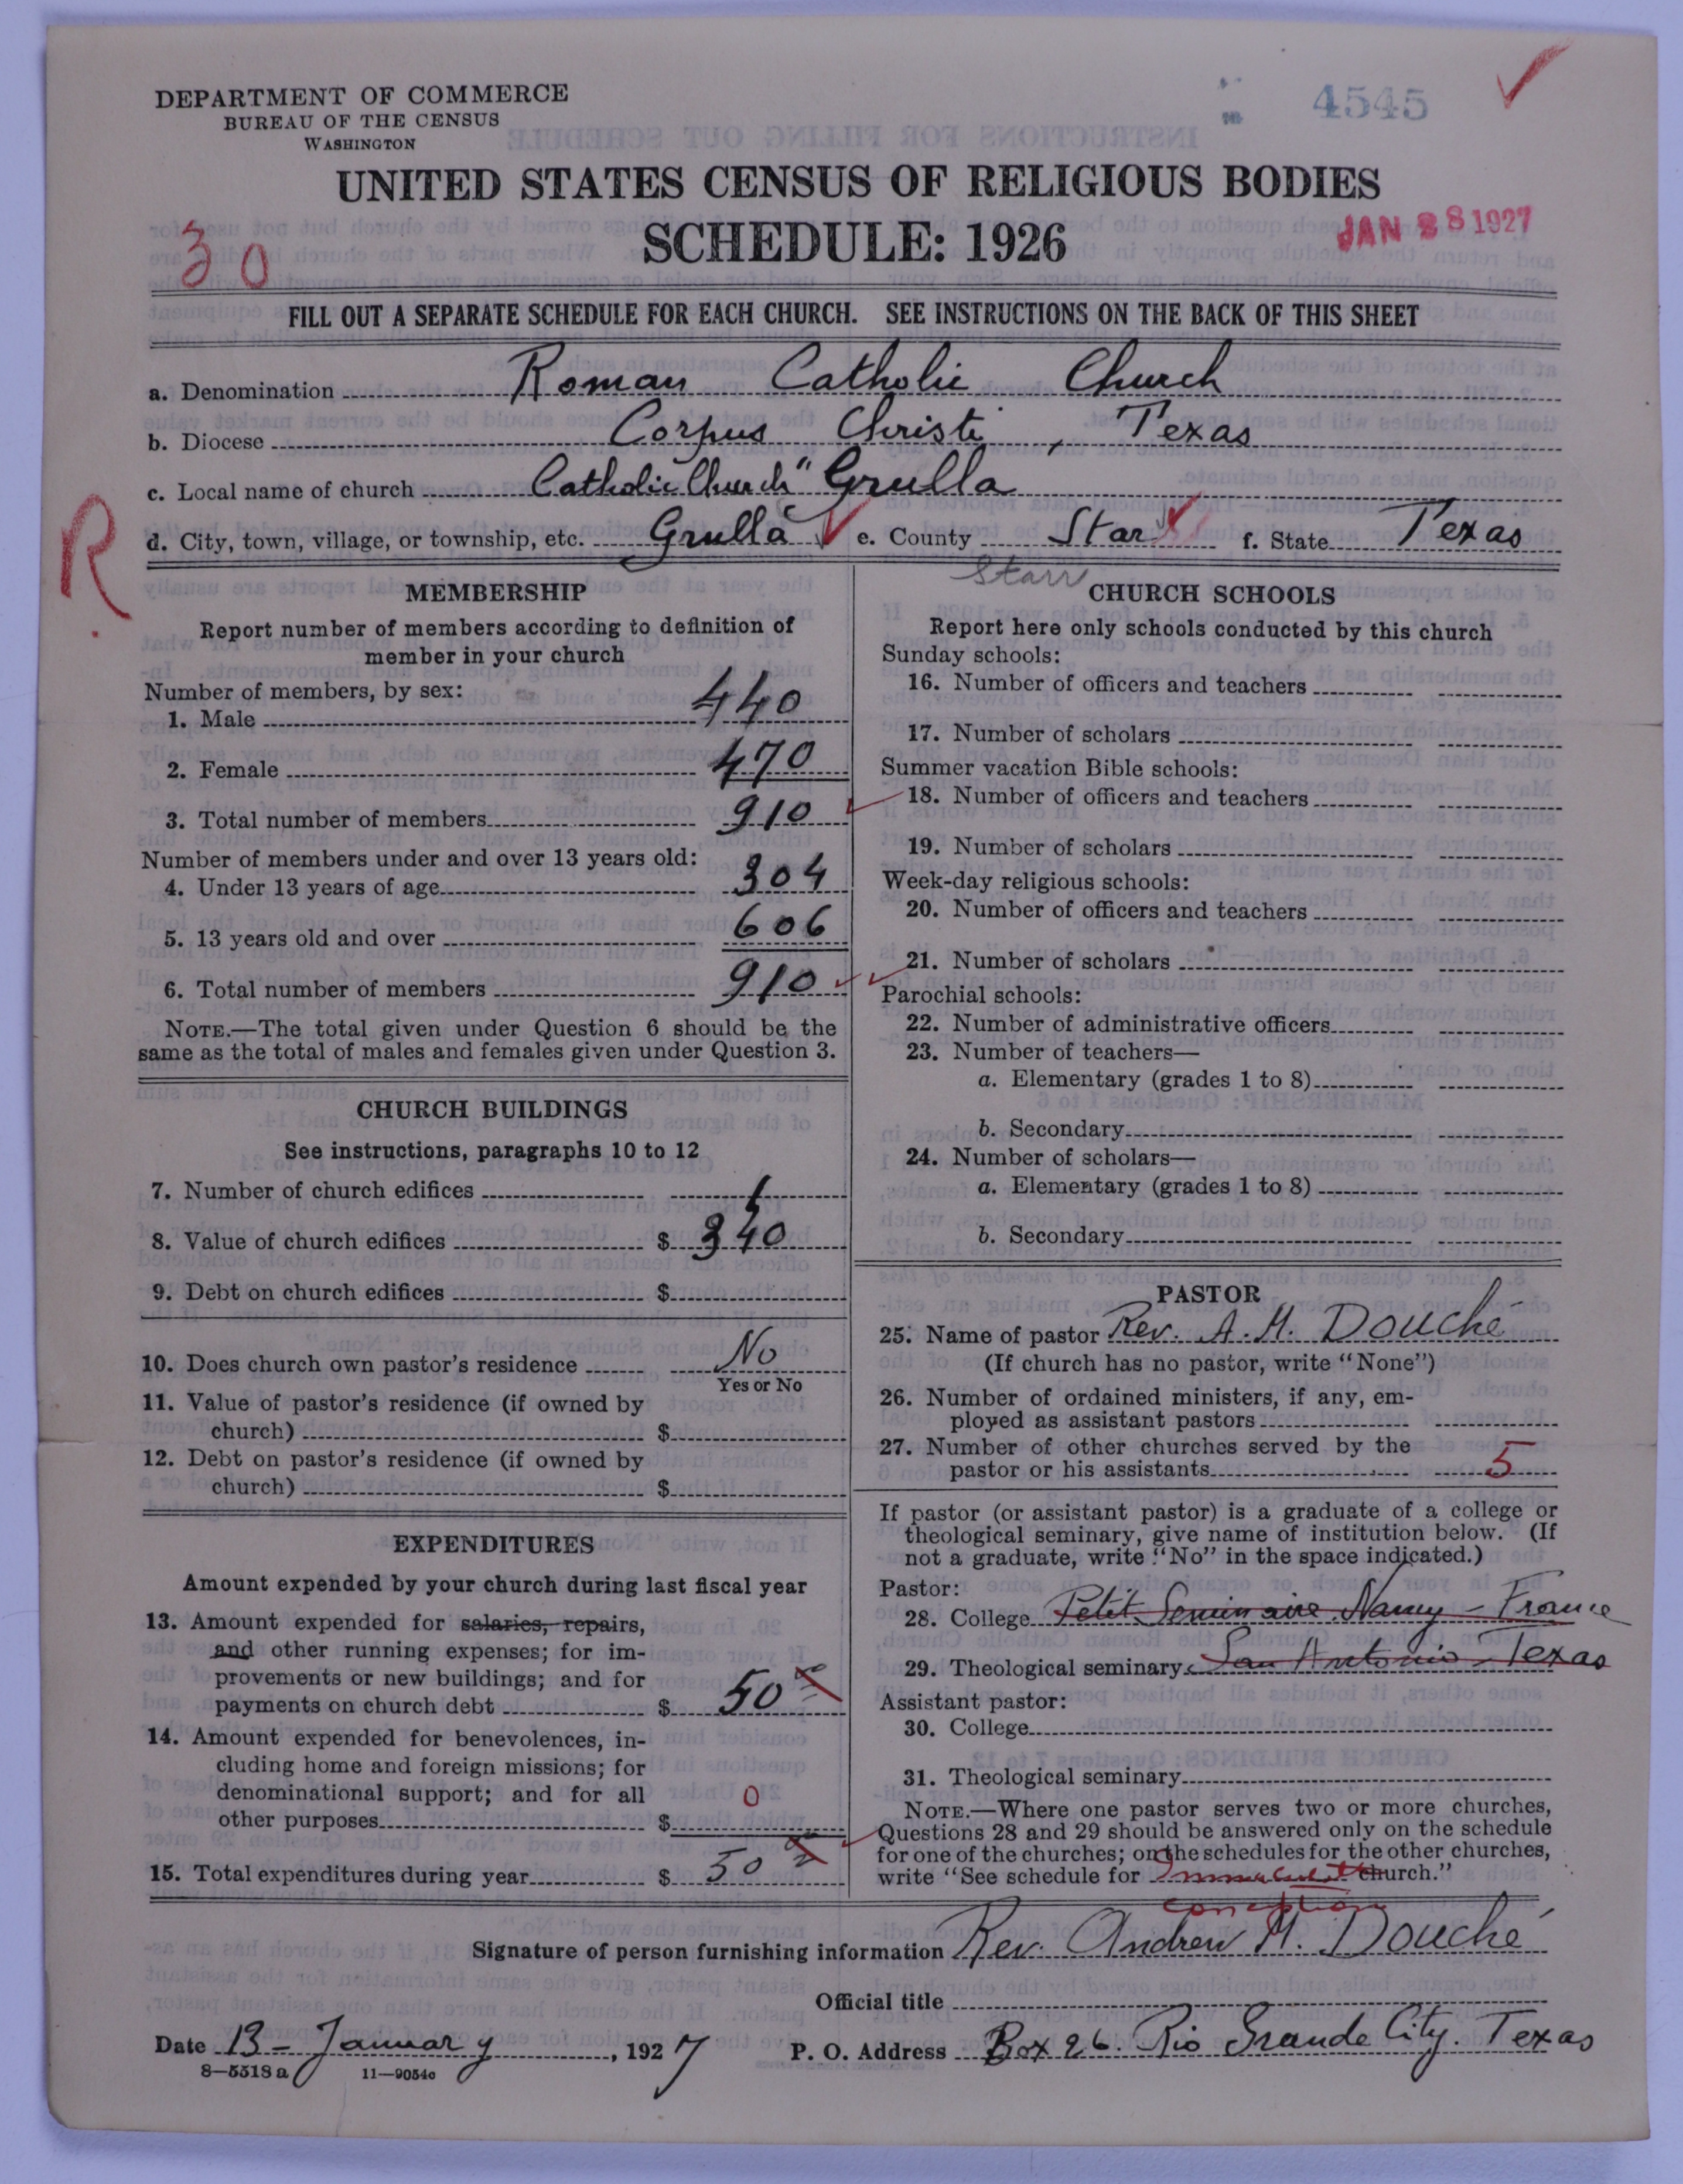 DEPARTMENT OF COMMERCE
BUREAU OF THE CENSUS
WASHINGTON
4545
UNITED STATES CENSUS OF RELIGIOUS BODIES
SCHEDULE: 1926
JAN 28 1927
30
FILL OUT A SEPARATE SCHEDULE FOR EACH CHURCH. SEE INSTRUCTIONS ON THE BACK OF THIS SHEET
a. Denomination Roman Catholic Church
b. Diocese Corpus Christi, Texas
c. Local name of church Catholic Church "Grulla
d. City, town, village, or township, etc. Grulla e. County Star f. State Texas
R
Starr
MEMBERSHIP
Report number of members according to definition of
member in your church
Number of members, by sex:
1. Male 440
2. Female 470
3. Total number of members 910
Number of members under and over 13 years old:
4. Under 13 years of age 304
5. 13 years old and over 606
6. Total number of members 910
NOTE.—The total given under Question 6 should be the
same as the total of males and females given under Question 3.
CHURCH BUILDINGS
See instructions, paragraphs 10 to 12
7. Number of church edifices 1
8. Value of church edifices $ 340
9. Debt on church edifices $
10. Does church own pastor's residence No
Yes or No
11. Value of pastor's residence (if owned by
church) $
12. Debt on pastor's residence (if owned by
church) $
EXPENDITURES
Amount expended by your church during last fiscal year
13. Amount expended for salaries, repairs,
and other running expenses; for im-
provements or new buildings; and for
payments on church debt $ 50
14. Amount expended for benevolences, in-
cluding home and foreign missions; for
denominational support; and for all
other purposes $ 0
15. Total expenditures during year $ 50
CHURCH SCHOOLS
Report here only schools conducted by this church
Sunday schools:
16. Number of officers and teachers
17. Number of scholars
Summer vacation Bible schools:
18. Number of officers and teachers
19. Number of scholars
Week-day religious schools:
20. Number of officers and teachers
21. Number of scholars
Parochial schools:
22. Number of administrative officers
23. Number of teachers—
a. Elementary (grades 1 to 8)
b. Secondary
24. Number of scholars—
a. Elementary (grades 1 to 8)
b. Secondary
PASTOR
25. Name of pastor Rev. A. M. Douché
(If church has no pastor, write "None")
26. Number of ordained ministers, if any, em-
ployed as assistant pastors
27. Number of other churches served by the
pastor or his assistants 5
If pastor (or assistant pastor) is a graduate of a college or
theological seminary, give name of institution below. (If
not a graduate, write "No" in the space indicated.)
Pastor:
28. College Petit Seminaire Nancy - France
29. Theological seminary San Antonio - Texas
Assistant pastor:
30. College
31. Theological seminary
NOTE.—Where one pastor serves two or more churches,
Questions 28 and 29 should be answered only on the schedule
for one of the churches; on the schedules for the other churches,
write "See schedule for Immaculate church."
conception
Signature of person furnishing information Rev. Andrew M. Douché
Official title
Date 13 - January, 1927 P. O. Address Box 26. Rio Grande City. Texas
8—5518 a 11—9054c